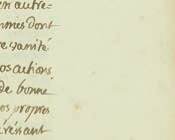 en autre-
mmes dont
re vanité
os actions
de bonne
os propres
érèssant